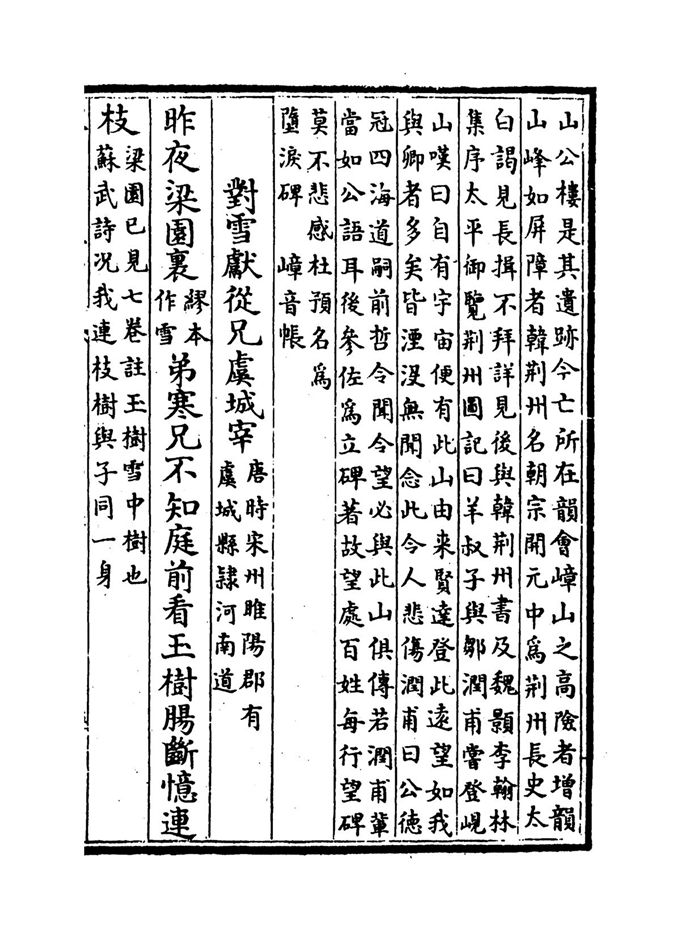 山公樓是其遺跡今亡所在韻會嶂山之高險者增韻
山峰如屏障者韓荆州名朝宗開元中為荆州長史太
白謁見長揖不拜詳見後與韓荆州書及魏顥李翰林
集序太平御覽荆州圖記曰羊叔子與鄒潤甫嘗登峴
山嘆曰自有宇宙便有此山由来賢達登此遠望如我
與卿者多矣皆湮没無聞念此令人悲傷潤甫曰公德
冠四海道嗣前哲令聞令望必與此山俱傳若潤甫輩
當如公語耳後參佐為立碑著故望處百姓每行望碑
莫不悲感杜預名為
墮淚碑 嶂音帳
對雪獻從兄虞城宰
唐時宋州睢陽郡有
虞城縣隸河南道
昨夜梁園裏
繆本
作雪
弟寒兄不知庭前看玉樹腸斷憶連
枝
梁園已見七卷註玉樹雪中樹也
蘇武詩况我連枝樹與子同一身